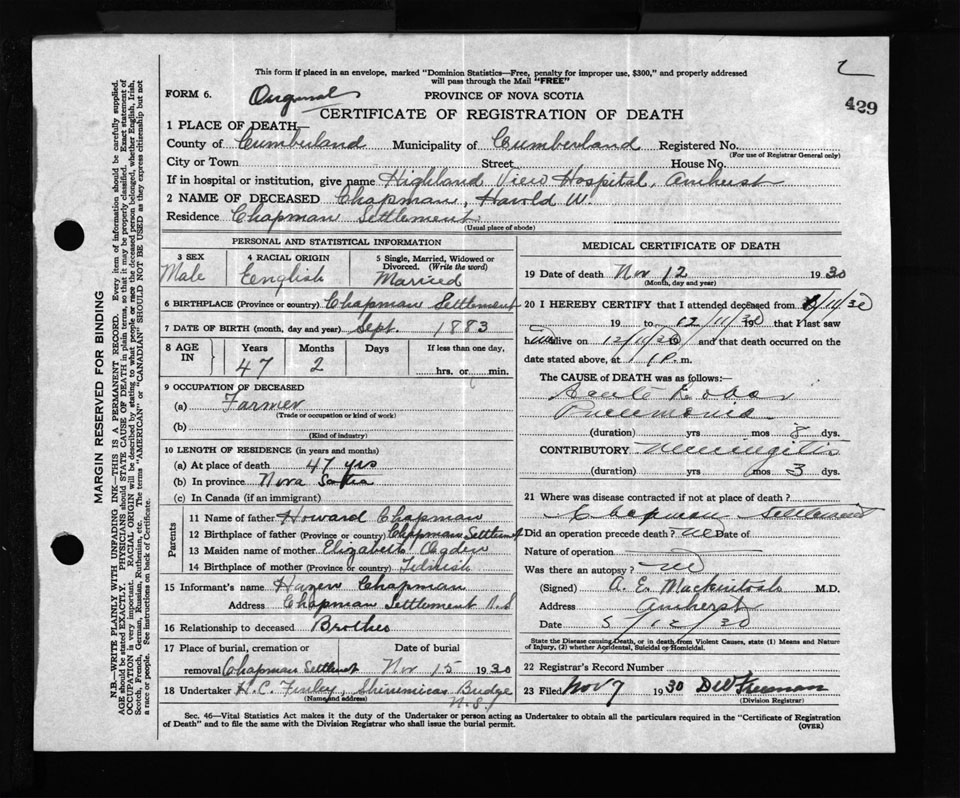 2
429
This form if placed in an envelope, marked "Dominion Statistics—Free, penalty for improper use, $300," and properly addressed
will pass through the Mail "FREE"
FORM 6. Original PROVINCE OF NOVA SCOTIA
CERTIFICATE OF REGISTRATION OF DEATH
1 PLACE OF DEATH
County of Cumberland Municipality of Cumberland Registered No.
(For use of Registrar General only)
City or Town Street House No.
If in hospital or institution, give name Highland View Hospital, Amherst
2 NAME OF DECEASED Chapman, Harold W.
Residence Chapman Settlement
(Usual place of abode)
PERSONAL AND STATISTICAL INFORMATION
3 SEX 4 RACIAL ORIGIN 5 Single, Married, Widowed or
Divorced. (Write the word)
Male English Married
6 BIRTHPLACE (Province or country) Chapman Settlement
7 DATE OF BIRTH (month, day and year) Sept. 1883
8 AGE IN Years Months Days If less than one day,
47 2 hrs. or min.
9 OCCUPATION OF DECEASED
(a) Farmer
(Trade or occupation or kind of work)
(b)
(Kind of industry)
10 LENGTH OF RESIDENCE (in years and months)
(a) At place of death 47 yrs
(b) In province Nova Scotia
(c) In Canada (if an immigrant)
Parents
11 Name of father Howard Chapman
12 Birthplace of father (Province or country) Chapman Settlement
13 Maiden name of mother Elizabeth Ogden
14 Birthplace of mother (Province or country) Tidnish
15 Informant's name Hazen Chapman
Address Chapman Settlement N.S
16 Relationship to deceased Brother
17 Place of burial, cremation or Date of burial
removal Chapman Settlmet Nov 15 1930
18 Undertaker H. C. Finley, Shinimicas Bridge
(Name and address) N.S.
MEDICAL CERTIFICATE OF DEATH
19 Date of death Nov 12 1930
(Month, day and year)
20 I HEREBY CERTIFY that I attended deceased from /11/30
19 to 12/11/30 19 that I last saw
h alive on 12/11/30 and that death occurred on the
date stated above, at 1 P. m.
The CAUSE OF DEATH was as follows:—
Acute Lobar
Pneumonia
(duration) yrs mos 8 dys.
CONTRIBUTORY Meningitis
(duration) yrs mos 3 dys.
21 Where was disease contracted if not at place of death?
Chapman Settlement
Did an operation precede death? no Date of
Nature of operation
Was there an autopsy? no
(Signed) A. E. Mackintosh M.D.
Address Amherst
Date 5/12/30
State the Disease causing Death, or in death from Violent Causes, state (1) Means and Nature
of Injury, (2) whether Accidental, Suicidal or Homicidal.
22 Registrar's Record Number
23 Filed Nov 7 1930 D W Freeman
(Division Registrar)
Sec. 46—Vital Statistics Act makes it the duty of the Undertaker or person acting as Undertaker to obtain all the particulars required in the "Certificate of Registration
of Death" and to file the same with the Division Registrar who shall issue the burial permit. (OVER)
MARGIN RESERVED FOR BINDING
N.B.—WRITE PLAINLY WITH UNFADING INK—THIS IS A PERMANENT RECORD. Every item of information should be carefully supplied.
AGE should be stated EXACTLY. PHYSICIANS should STATE CAUSE OF DEATH in plain terms, so that it may be properly classified. Exact statement of
OCCUPATION is very important. RACIAL ORIGIN will be described by stating to what people or race the deceased person belonged, whether English, Irish,
Scotch, French, German, Russian, Ruthenian, etc. The terms "AMERICAN" or "CANADIAN" SHOULD NOT BE USED as they express citizenship but not
a race or people. See instructions on back of Certificate.